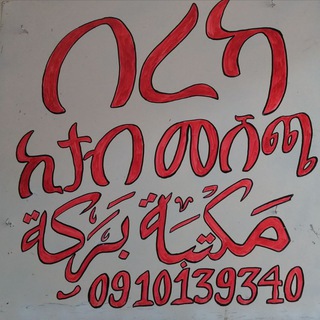 በረካ
ኪታብ መሸጫ
مَكتبَة بَركِة
0910139340